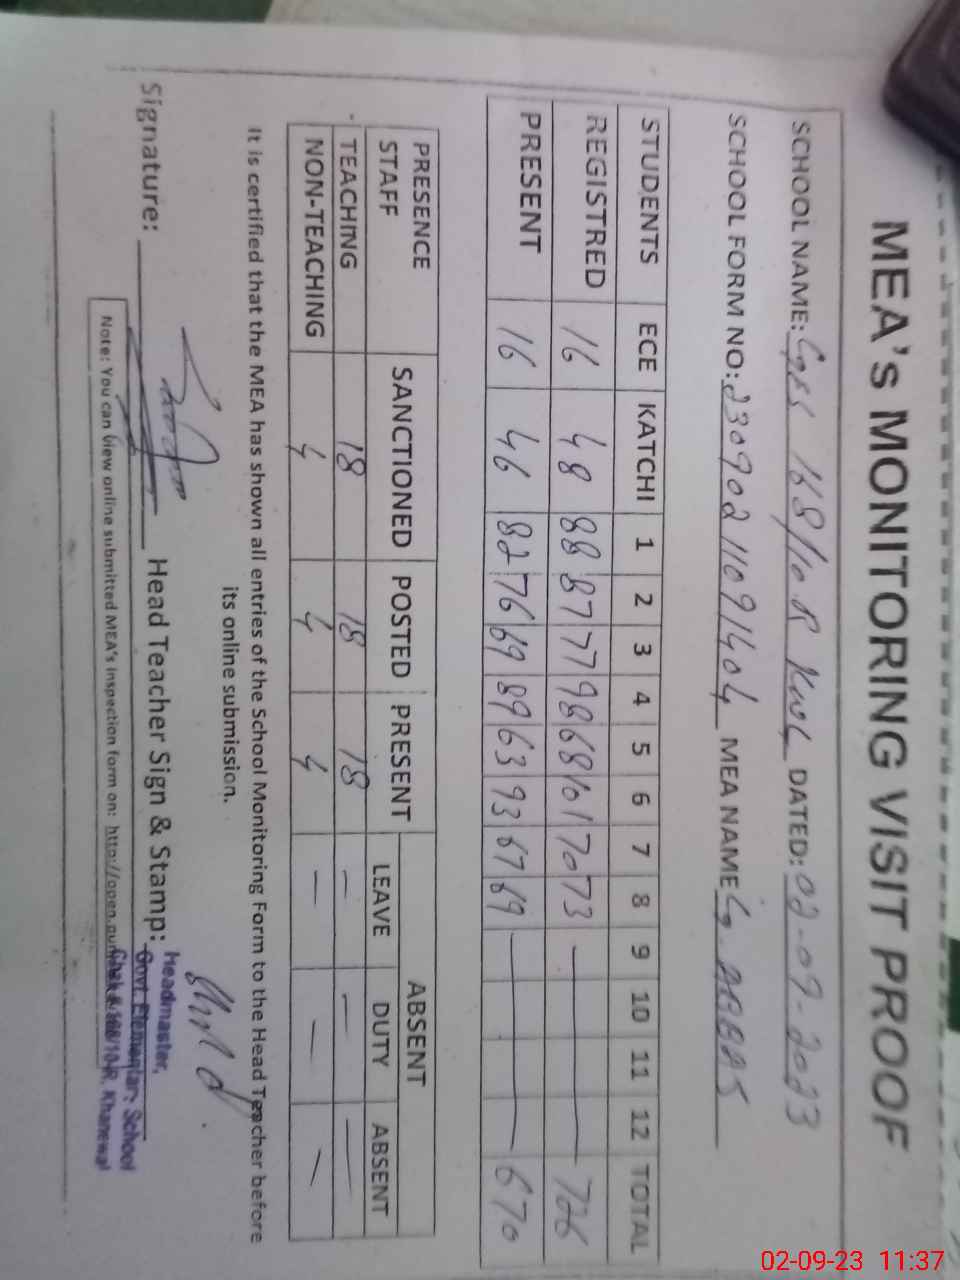 MEA's MONITORING VISIT PROOF
SCHOOL NAME: 168/10R KWL DATED: 02-09-2023
SCHOOL FORM NO: 23090211091404 MEA NAME ABBAS
STUDENTS ECE KATCHI 1 2 3 4 5 6 7 8 9 10 11 12 TOTAL
REGISTRED 16 48 88 87 77 98 68 101 70 73 — 726
PRESENT 16 46 82 76 69 89 63 93 67 69 — 670
PRESENCE STAFF SANCTIONED POSTED PRESENT ABSENT
LEAVE DUTY ABSENT
TEACHING 18 18 18 — — —
NON-TEACHING 4 4 4 — — —
It is certified that the MEA has shown all entries of the School Monitoring Form to the Head Teacher before
its online submission.
Signature: Head Teacher Sign & Stamp:
Headmaster,
Govt. Elementary School
Chak # 168/10-R, Khanewal
Note: You can view online submitted MEA's inspection form on: http://open.
02-09-23 11:37